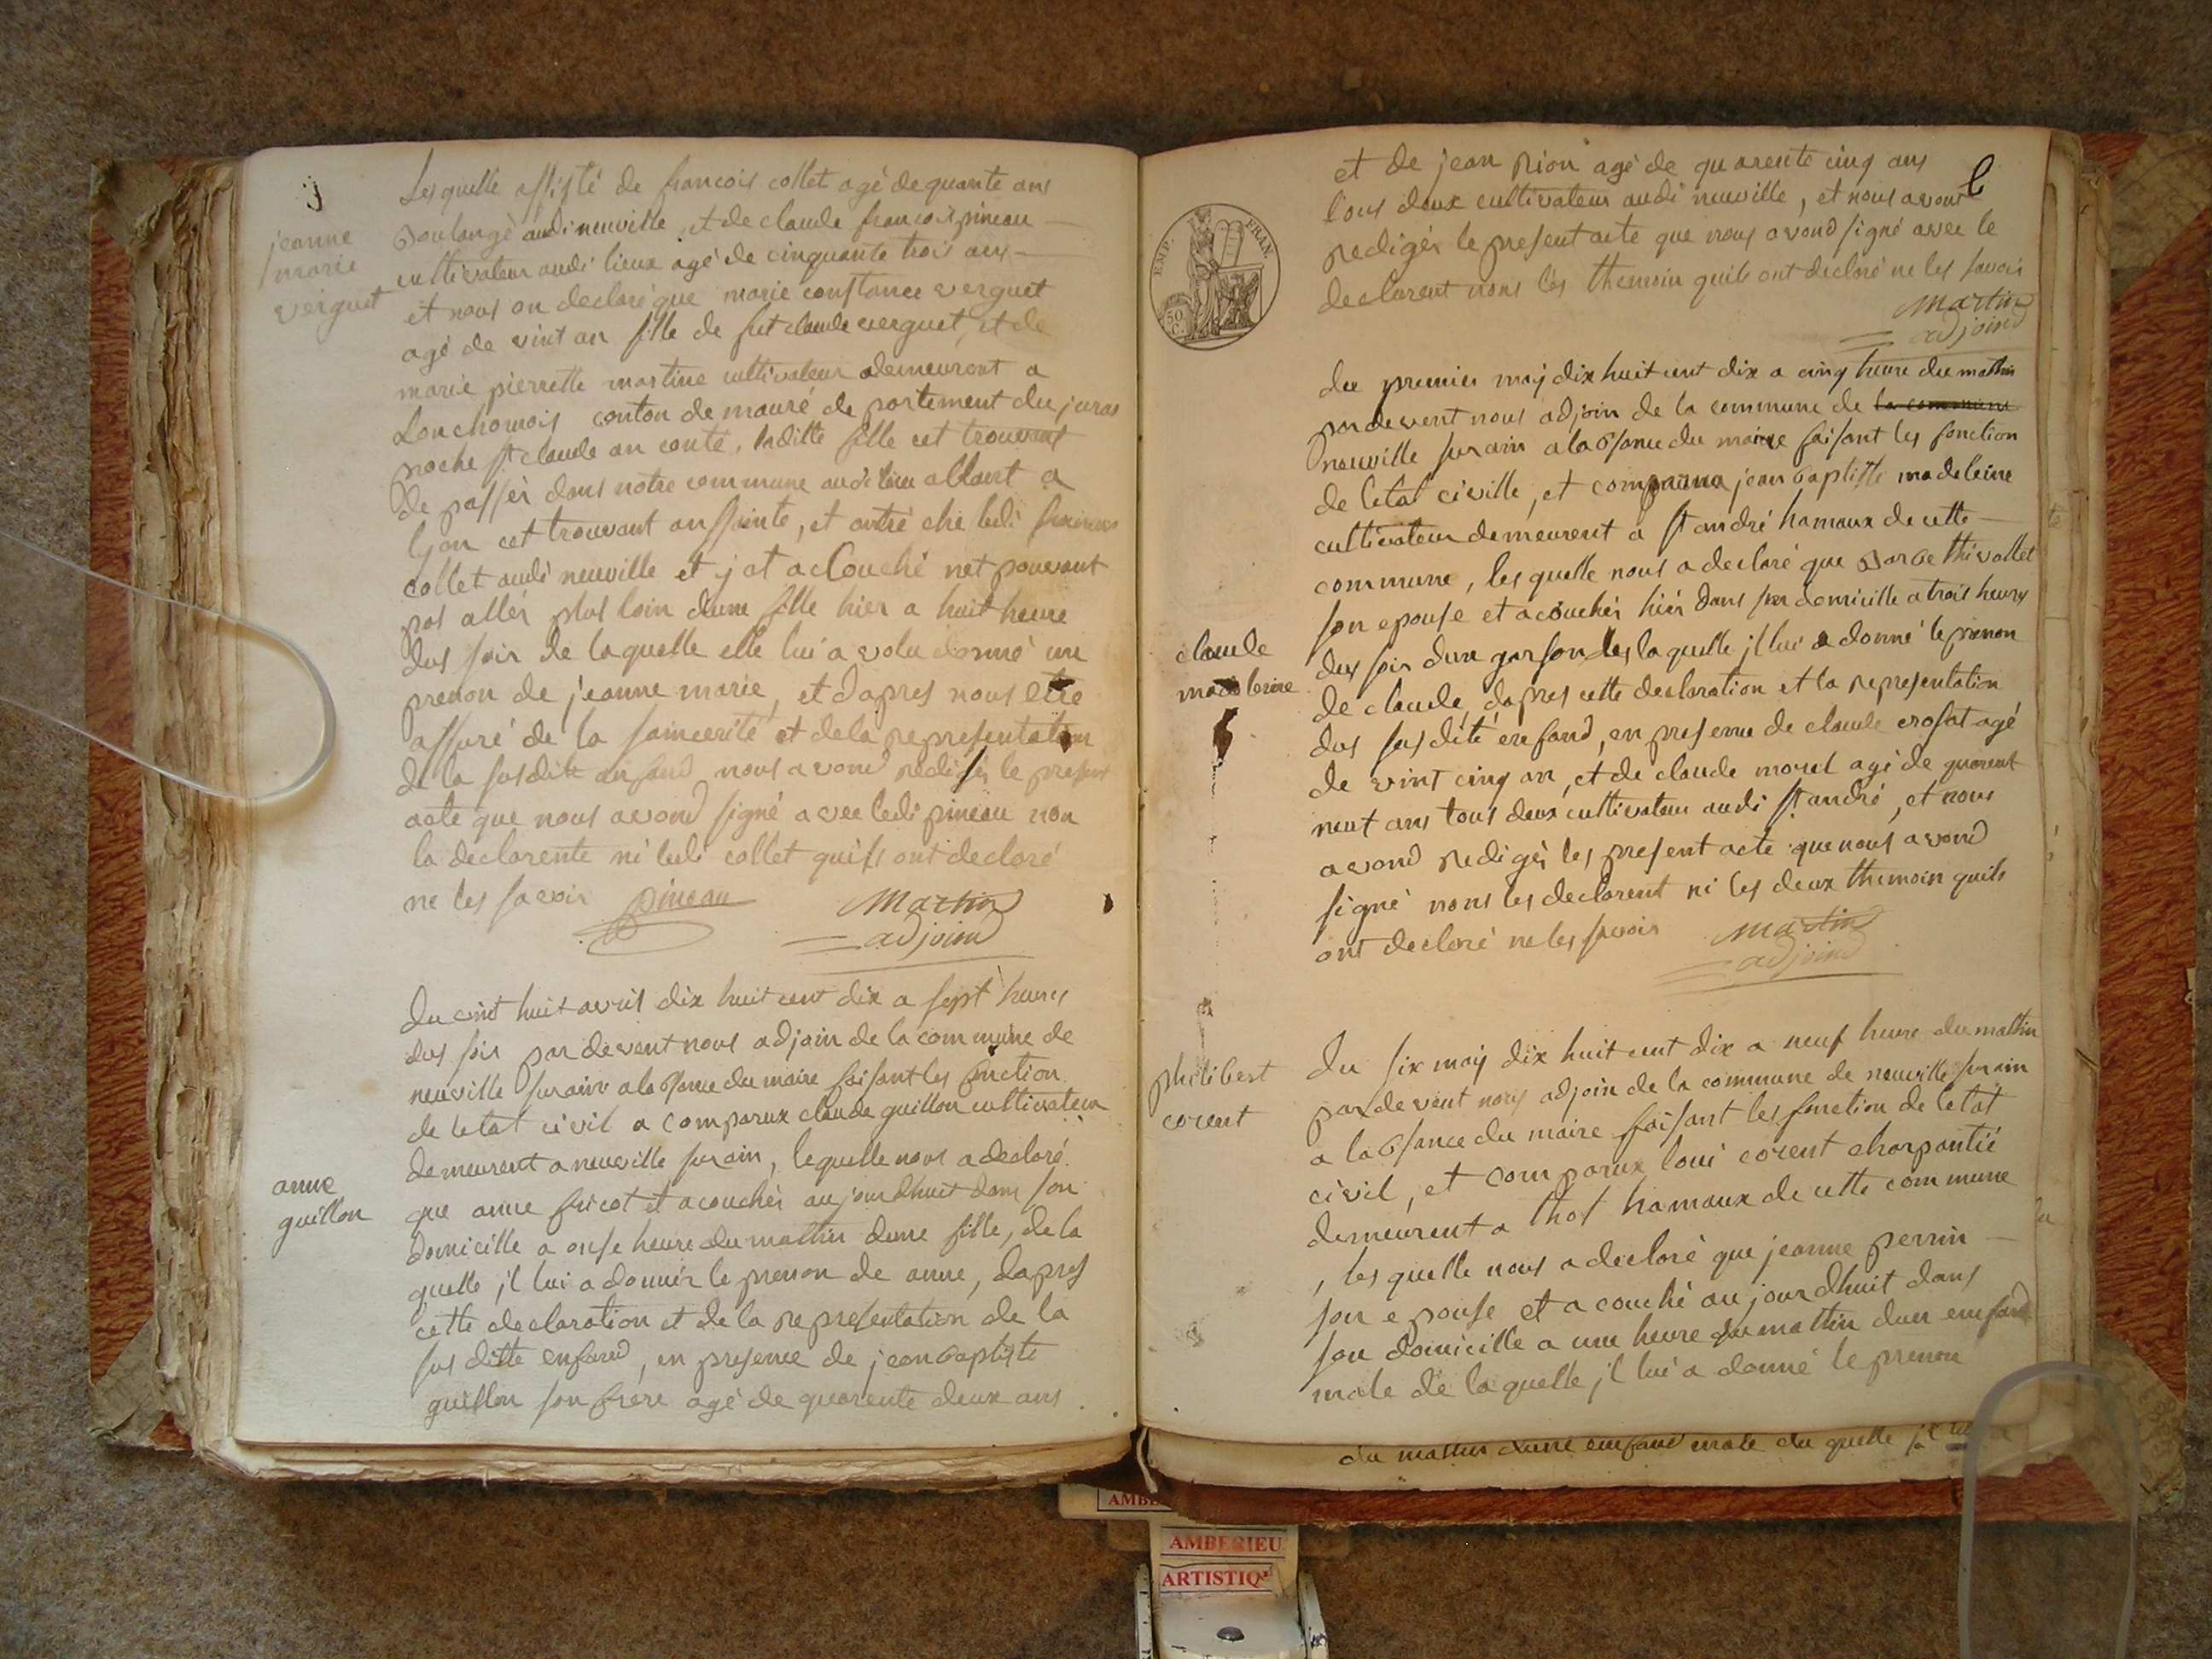 jeanne
marie
verguet
Lesquelle assisté de francois collet agé de quante ans
boulangé audi neuville, et de claude francois pineau
cultivateur audi lieux agé de cinquante trois ans
et nous on declaré que marie constance verguet
agé de vint an fille de fut claude verguet, et de
marie pierrette martine cultivateur demeurent a
Lonchomois conton de mauré de portement du juras
proche st claude an conte, laditte fille cet trouvant
de passér dans notre commune audi lieu allant a
lyon cet trouvant anssinte, et antré ché ledi francois
collet audi neuville et y at aclouché net pouvant
pas allér plus loin dune fille hier a huit heure
dus soir de laquelle elle lui a volu donné un
prenon de jeanne marie, et dapres nous etre
assuré de la saincerité et dela representation
de la susdite anfand nous avond redigér le present
acte que nous avond signé avec ledi pineau non
la declarente ni ledi collet quils ont declaré
ne les savoir pineau Martin
adjoind
anne
guillon
Du vint huit avril dix huit cent dix a sept heures
dus soir par devent nous adjoin de la commune de
neuville sur ain a labsance du maire faisant les fonction
de letat civil a comparux claude guillon cultivateur
demeurent a neuville sur ain, lequelle nous a declaré
que anne fricot et acouchér aujourdhuit dans son
domicille a onse heure du mattin dune fille, de la
quelle, jl lui a donnér le prenon de anne, dapres
cette declaration et de la representation de la
sus ditte enfand, en presence de jean baptiste
guillon son frere agé de quarente deux ans
et de jean pion agé de quarente cinq ans
tous deux cultivateur audi neuville, et nous avont
redigér le present acte que nous avond signé avec le
declarent nons lés themoin quils ont declaré ne les savoir
Martin
adjoind
EMP. FRAN.
50 C.
du premier maij dix huit cent dix a cinq heure du mattin
par devent nous adjoin de la commune de la commune
neuville sur ain a labsance du maire faisant les fonction
de letat civille, et comparux jean baptiste madeleine
cultivateur demeurent a st andré hamaux de cette
commune, les quelle nous a declaré que barbe thévollet
son epouse et acouchér hiér dans son domicille a trois heures
dus soir dun garson de laquelle jl lui a donné le prenon
de claude, dapres cette declaration et la representation
dus susdité enfand, en presence de claude crosat agé
de vint cinq an, et de claude morel agé de quarent
neut ans tous deux cultivateur audi st andré, et nous
avond redigér les present acte que nous avond
signé nons les declarent ni les deux themoin quils
ont declaré ne les savoir Martin
adjoind
claude
madeleine
philibert
corent
Du six maij dix huit cent dix a neuf heure du mattin
par devent nous adjoin de la commune de neuville sur ain
a labsance du maire faisant les fonction de letat
civil, et comparux loui corent charpantié
demeurent a thol hamaux de cette commune
, les quelle nous a declaré que jeanne perrin
son epouse et acouché aujourdhuit dans
son domicille a une heure du mattin dun enfand
male de laquelle, jl lui a donné le prenon
du mattin dune enfand male du quelle jl lui
AMBERIEU
ARTISTIQ